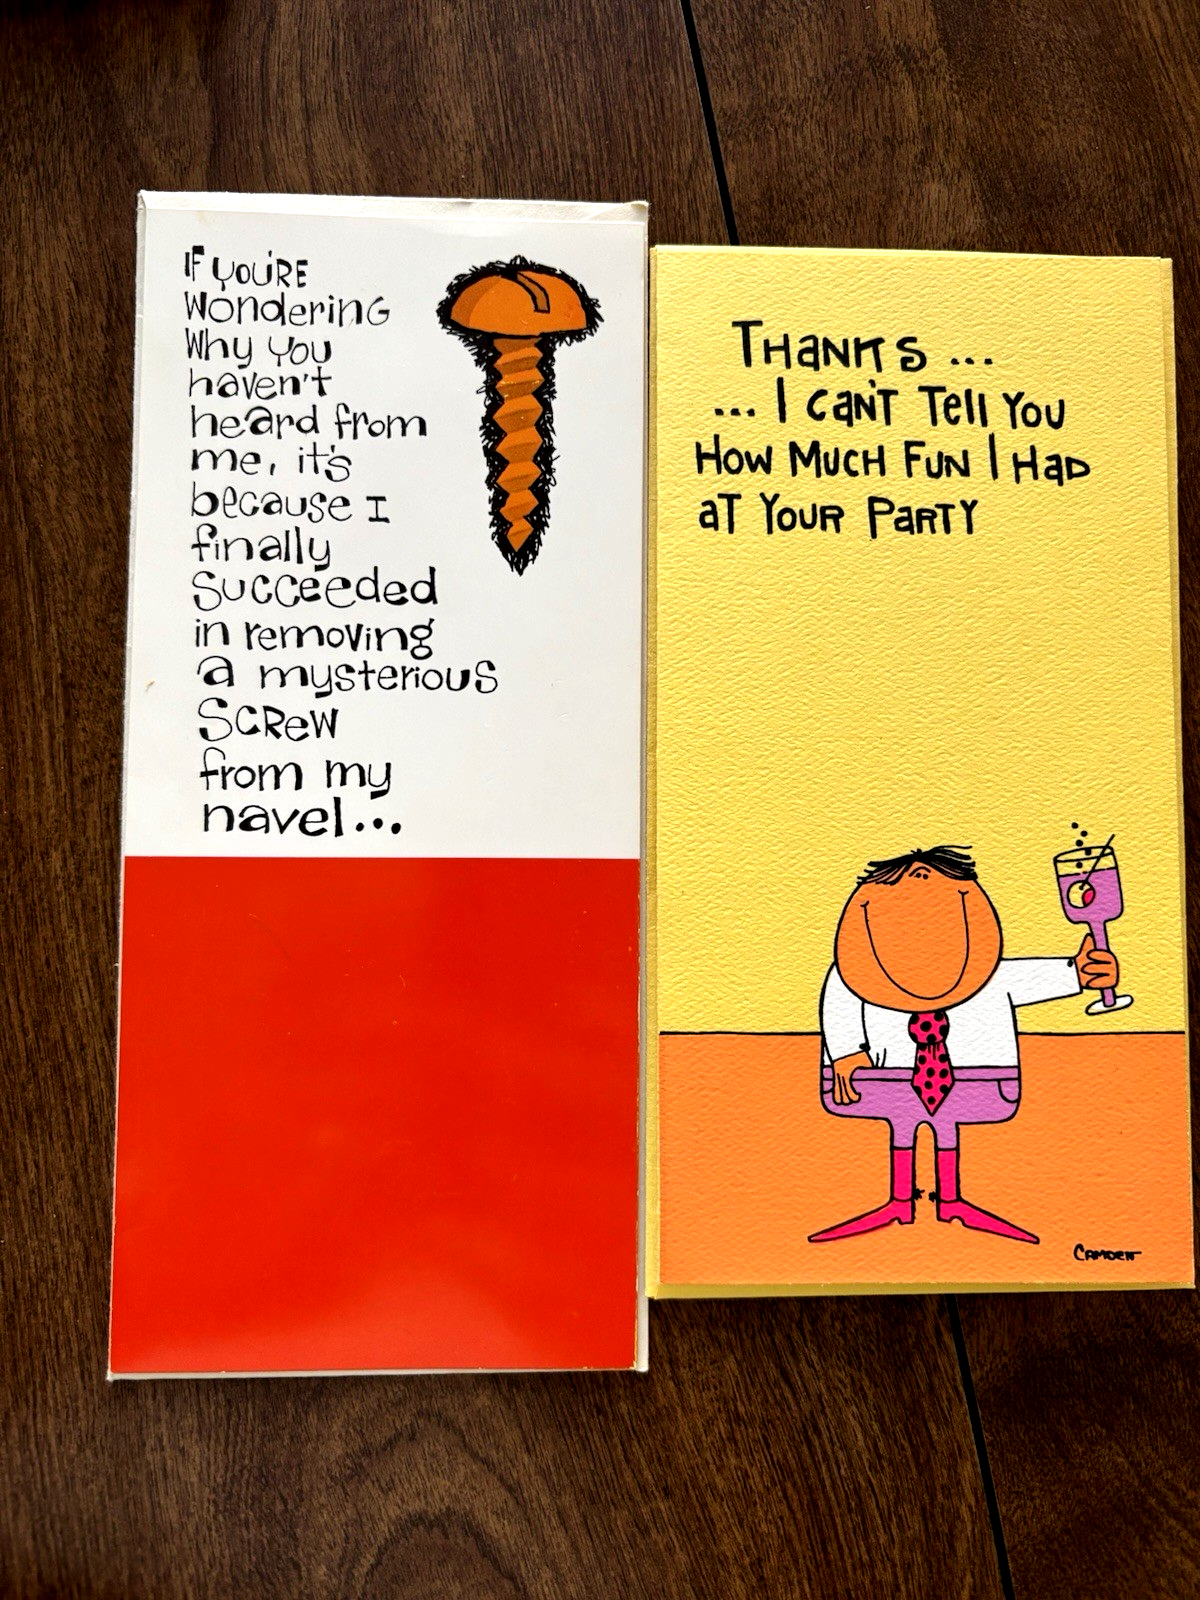 IF you're
Wondering
Why You
haven't
heard from
me, it's
because I
finally
Succeeded
in removing
a mysterious
SCREW
from my
navel...
THANKS ...
... I CAN'T Tell You
How MUCH FUN I HAD
aT YOUR PARTY
CAMDEN